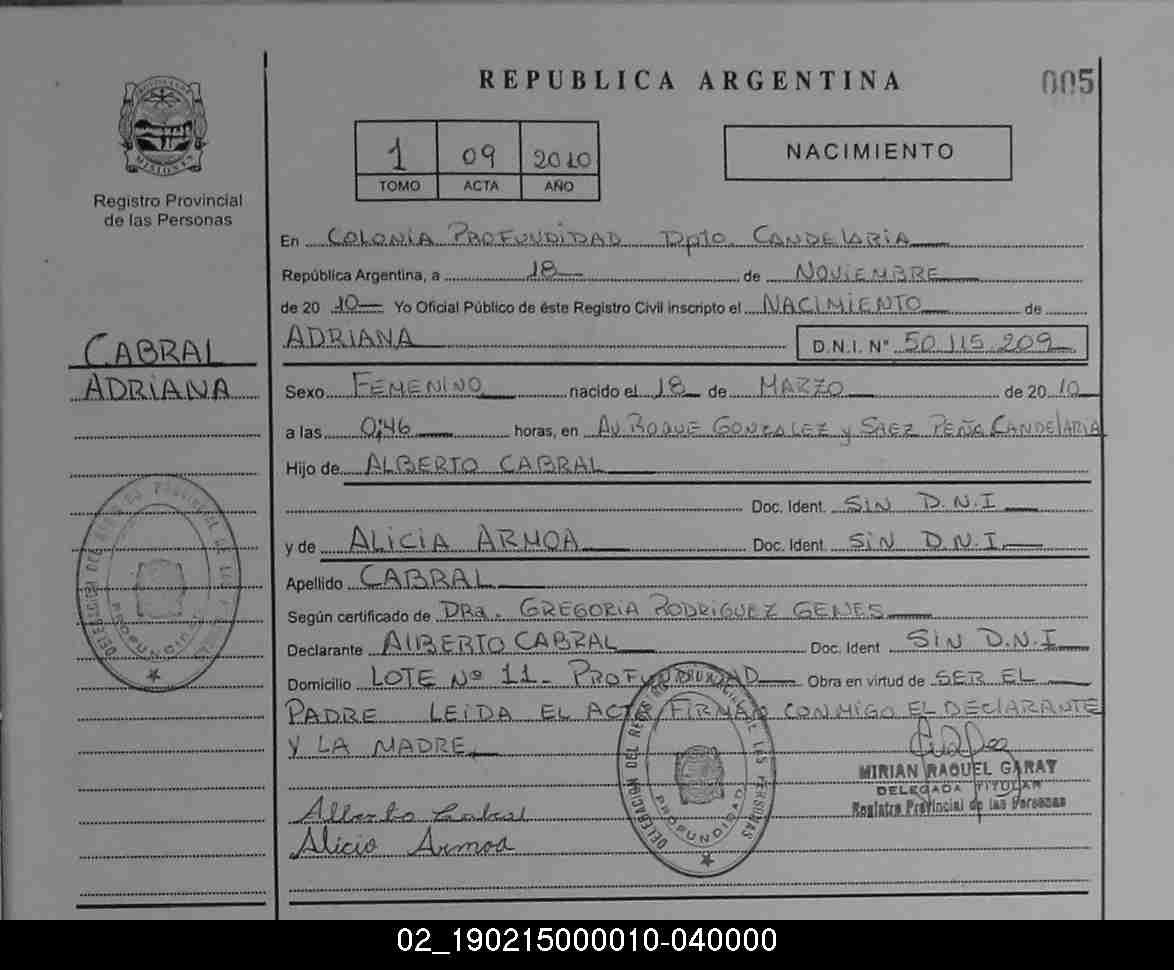 REPUBLICA ARGENTINA
005
MISIONES
Registro Provincial
de las Personas
1 09 2010
TOMO ACTA AÑO
NACIMIENTO
En COLONIA PROFUNDIDAD Dpto. CANDELARIA
República Argentina, a 18 de NOVIEMBRE
de 2010 Yo Oficial Público de éste Registro Civil inscripto el NACIMIENTO de
ADRIANA D.N.I. Nº 50.115.209
CABRAL
ADRIANA
Sexo FEMENINO nacido el 18 de MARZO de 2010
a las 0;46 horas, en AV. ROQUE GONZALEZ y SAEZ PEÑA CANDELARIA
Hijo de ALBERTO CABRAL
Doc. Ident. SIN D.N.I
y de ALICIA ARMOA Doc. Ident. SIN D.N.I.
Apellido CABRAL
Según certificado de DRa. GREGORIA RODRIGUEZ GENES
Declarante AlBERTO CABRAL Doc. Ident SIN D.N.I
Domicilio LOTE Nº 11 - PROFUNDIDAD Obra en virtud de SER EL
PADRE LEIDA EL ACTA FIRMAN CONMIGO EL DEClARANTE
Y LA MADRE
MIRIAN RAQUEL GARAY
DELEGADA TITULAR
Registro Provincial de las Personas
Alberto Cabral
Alicia Armoa
DELEGACION DEL REGISTRO PROVINCIAL DE LAS PERSONAS
PROFUNDIDAD
DELEGACION DEL REGISTRO PROVINCIAL DE LAS PERSONAS
PROFUNDIDAD
02_190215000010-040000